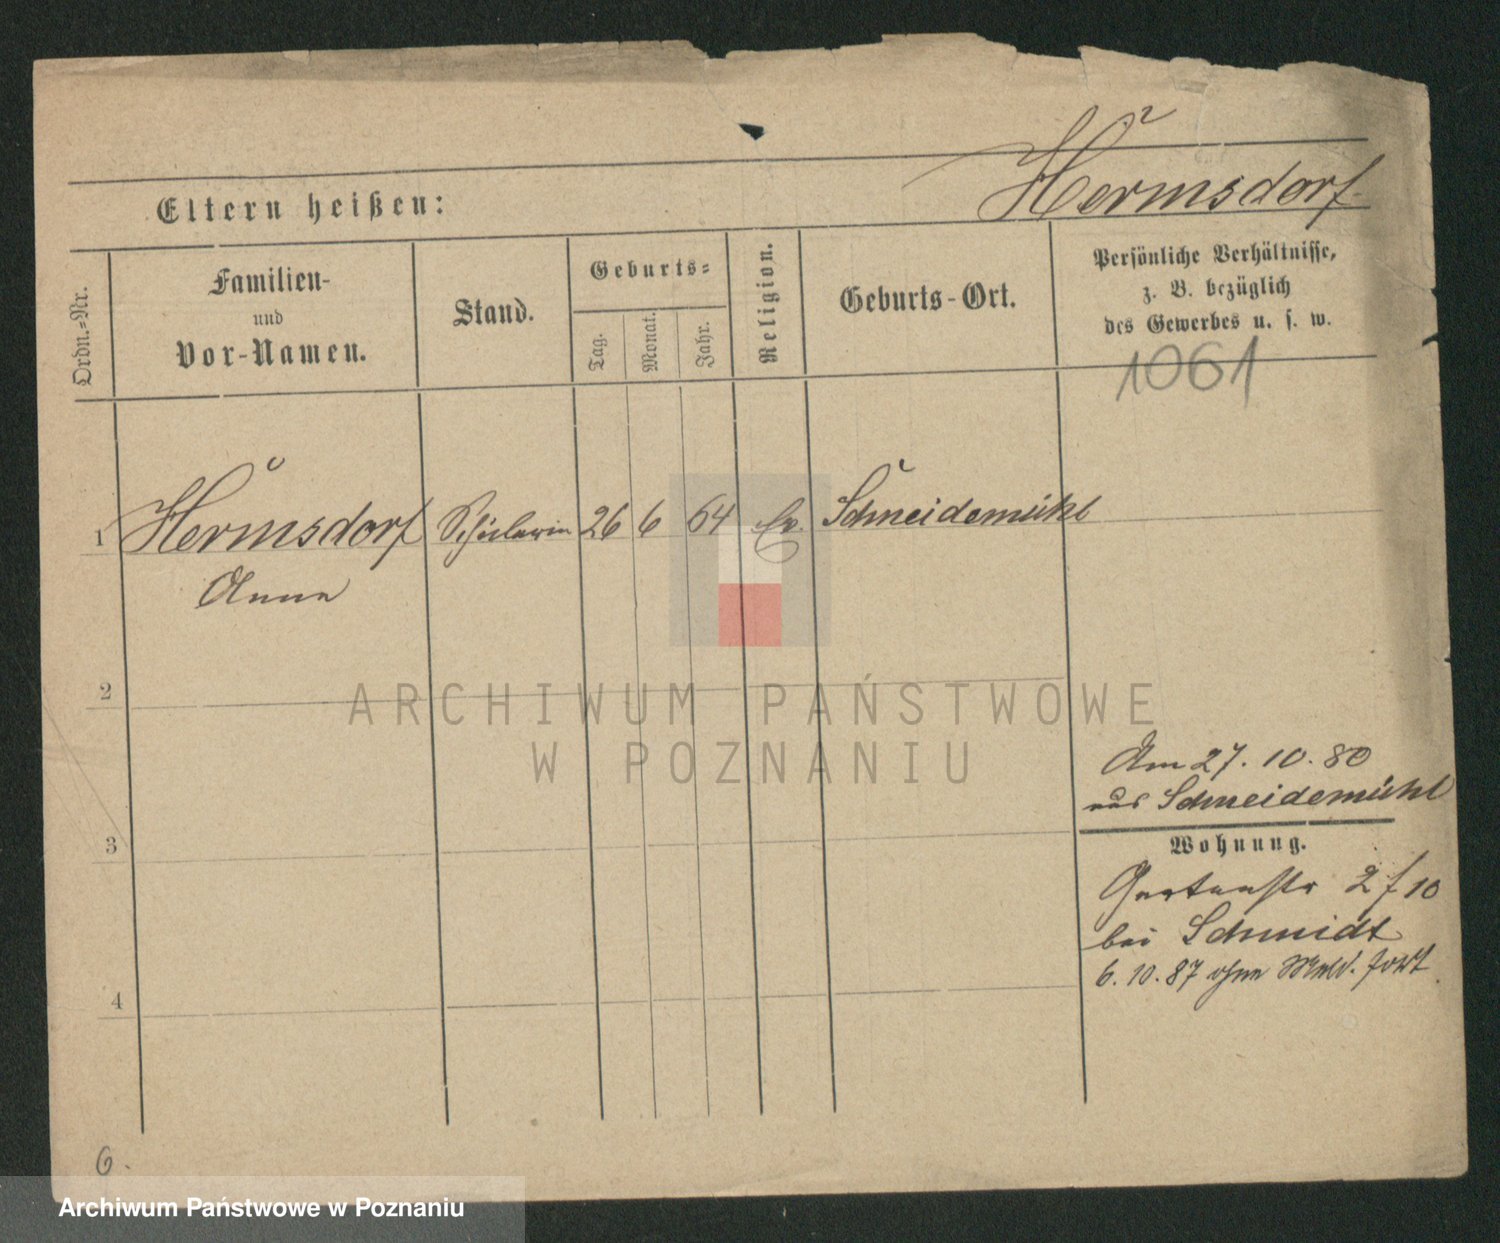 Hermsdorf
Eltern heißen:
Ordn.=Nr.
Familien-
und
Vor-Namen.
Stand.
Geburts=
Tag.
Monat.
Jahr.
Religion.
Geburts-Ort.
Persönliche Verhältnisse,
z. B. bezüglich
des Gewerbes u. s. w.
1061
1 Hermsdorf Schülerin 26 6 64 Ev. Schneidemühl
Anna
2
ARCHIWUM PAŃSTWOWE
W POZNANIU
Am 27. 10. 80
aus Schneidemühl
3
Wohnung.
Gartenstr 2 f 10
bei Schmidt
6. 10. 87 ohne Meld. fort
4
6.
Archiwum Państwowe w Poznaniu